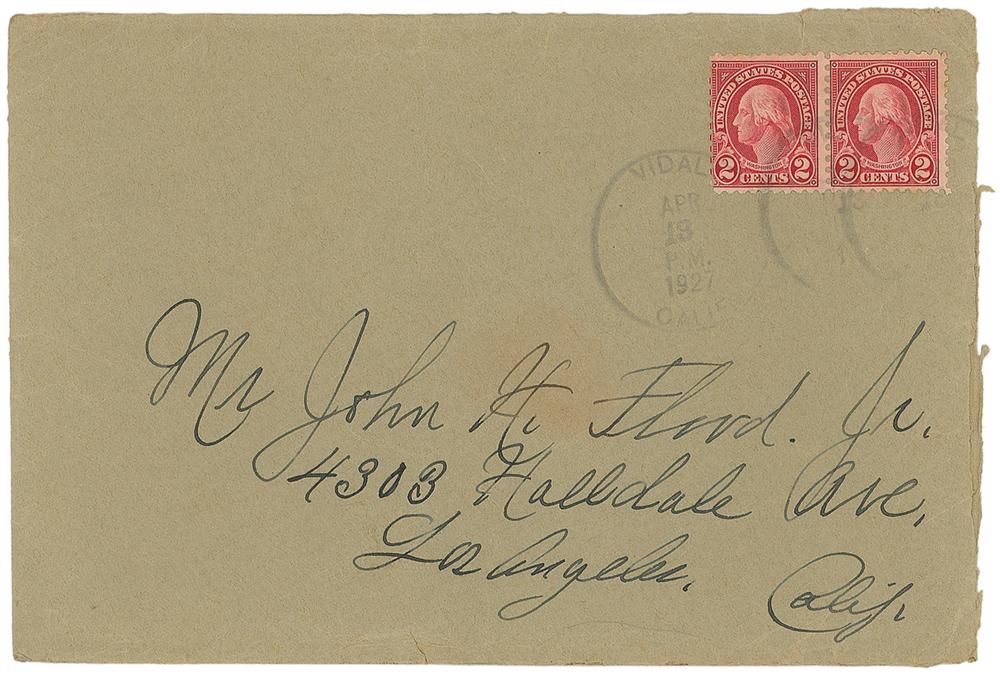 UNITED STATES POSTAGE UNITED STATES POSTAGE
WASHINGTON WASHINGTON
2 CENTS 2 2 CENTS 2
VIDAL
APR
13
P.M.
1927
CALIF
Mr John H. Flood. Jr.
4303 Halldale Ave.
Los Angeles.
Calif.